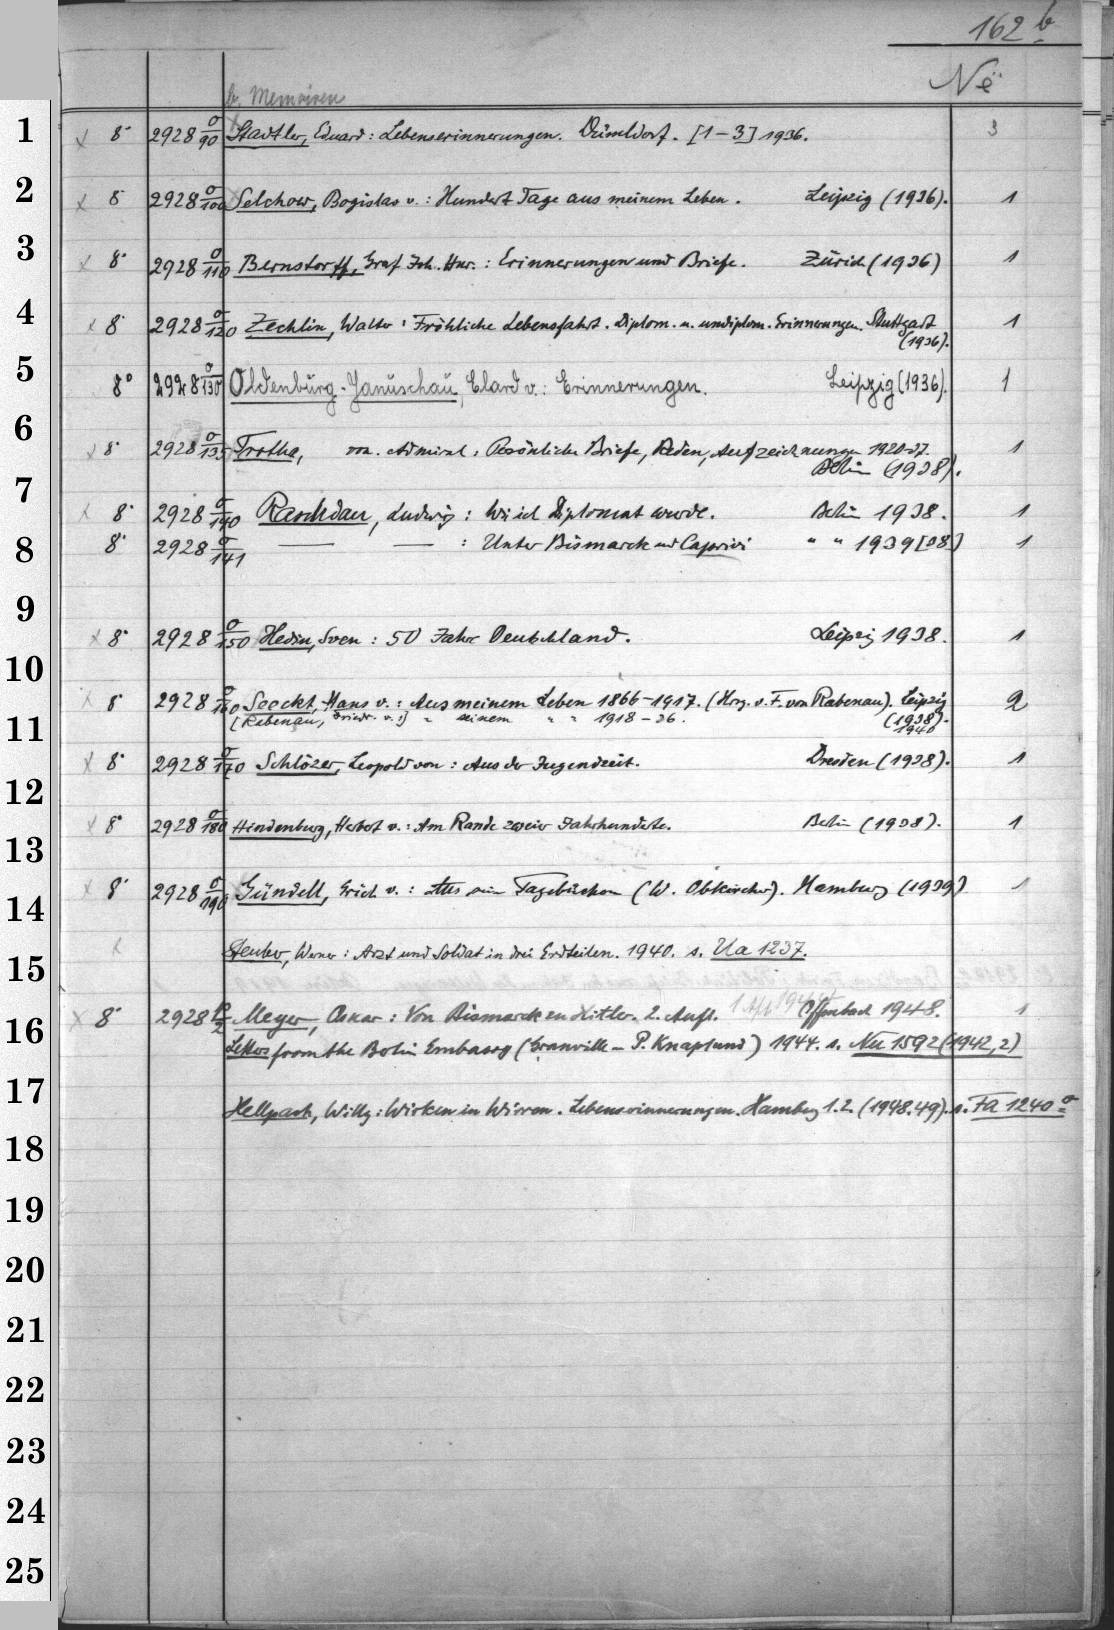 162 b
Në
b. Memoiren
1 x 8° 2928 σ/90 Stadtler, Eduard: Lebenserinnerungen. Düsseldorf. [1-3] 1936. 3
2 x 8° 2928 σ/100 Selchow, Bogislav v.: Hundert Tage aus meinem Leben. Leipzig (1936). 1
3 x 8° 2928 σ/110 Bernstorff, Graf Joh. Hnr.: Erinnerungen und Briefe. Zürich (1936) 1
4 x 8° 2928 σ/120 Zechlin, Walter: Fröhliche Lebensfahrt. Diplom. u. undiplom. Erinnerungen. Stuttgart 1
(1936).
5 8° 2928 σ/130 Oldenburg-Januschau, Elard v.: Erinnerungen. Leipzig (1936). 1
6 x 8° 2928 σ/135 Trotha, von. Admiral, Persönliche Briefe, Reden, Aufzeichnungen 1920-37. 1
7 Berlin (1938).
x 8° 2928 σ/140 Raschdau, Ludwig: Wie ich Diplomat wurde. Berlin 1938. 1
8 8° 2928 σ/141 — — : Unter Bismarck und Caprivi " " 1939 [38] 1
9 x 8° 2928 σ/150 Hedin, Sven: 50 Jahre Deutschland. Leipzig 1938. 1
10 x 8° 2928 σ/160 Seeckt, Hans v.: Aus meinem Leben 1866-1917. (Hrg. v. F. von Rabenau). Leipzig 2
11 [Rabenau, Friedr. v.:] " seinem " " 1918-36. (1938).
1940
x 8° 2928 σ/170 Schlözer, Leopold von: Aus der Jugendzeit. Dresden (1938). 1
12 x 8° 2928 σ/180 Hindenburg, Herbert v.: Am Rande zweier Jahrhunderte. Berlin (1938). 1
13 x 8° 2928 σ/190 Gündell, Erich v.: Aus sein Tagebüchern (W. Obkircher). Hamburg (1939) 1
14 x Steuber, Werner: Arzt und Soldat in drei Erdteilen. 1940. s. Ua 1237.
15 x 8° 2928 p/2 Meyer, Oskar: Von Bismarck zu Hitler. 2. Aufl. Offenbach 1948. 1
16 Letters from the Berlin Embassy (Granville - P. Knaplund) 1944. s. Nu 1592 (1942,2)
17 Hellpach, Willy: Wirken in Wirren. Lebenserinnerungen. Hamburg 1.2. (1948.49). s. Fa 1240 σ
18
19
20
21
22
23
24
25